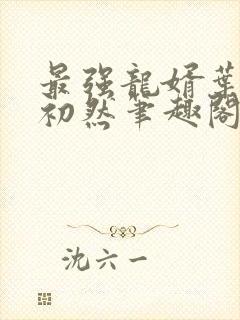 最强龍婿葉
初然筆趣閣
沈六一